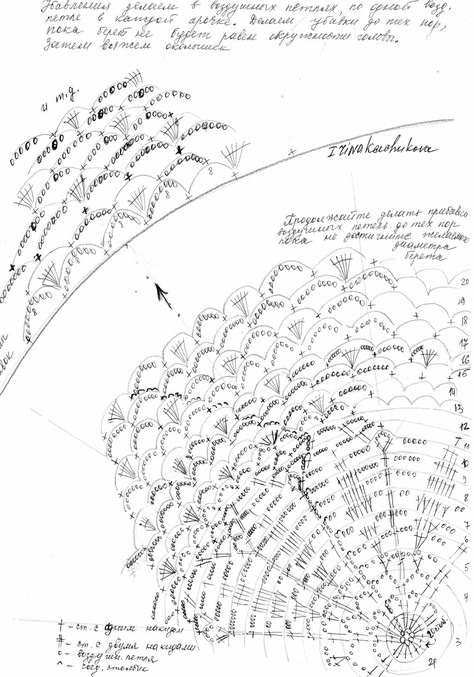 Убавления делаем в воздушных петлях, по одной возд.
петле в каждой арочке. Делаем убавки до тех пор,
пока берет не будет равен окружности головы.
Затем вяжем околышек
и т.д.
8
8
Продолжайте делать прибавки
воздушных петель до тех пор
пока не достигните желаемого
диаметра
берета
20
19
18
17
16
15
14
13
12
11
10
9
8
7
6
5
4
3
- ст. с одним накидом
- ст. с двумя накидами
- воздушн. петля
- соед. столбик